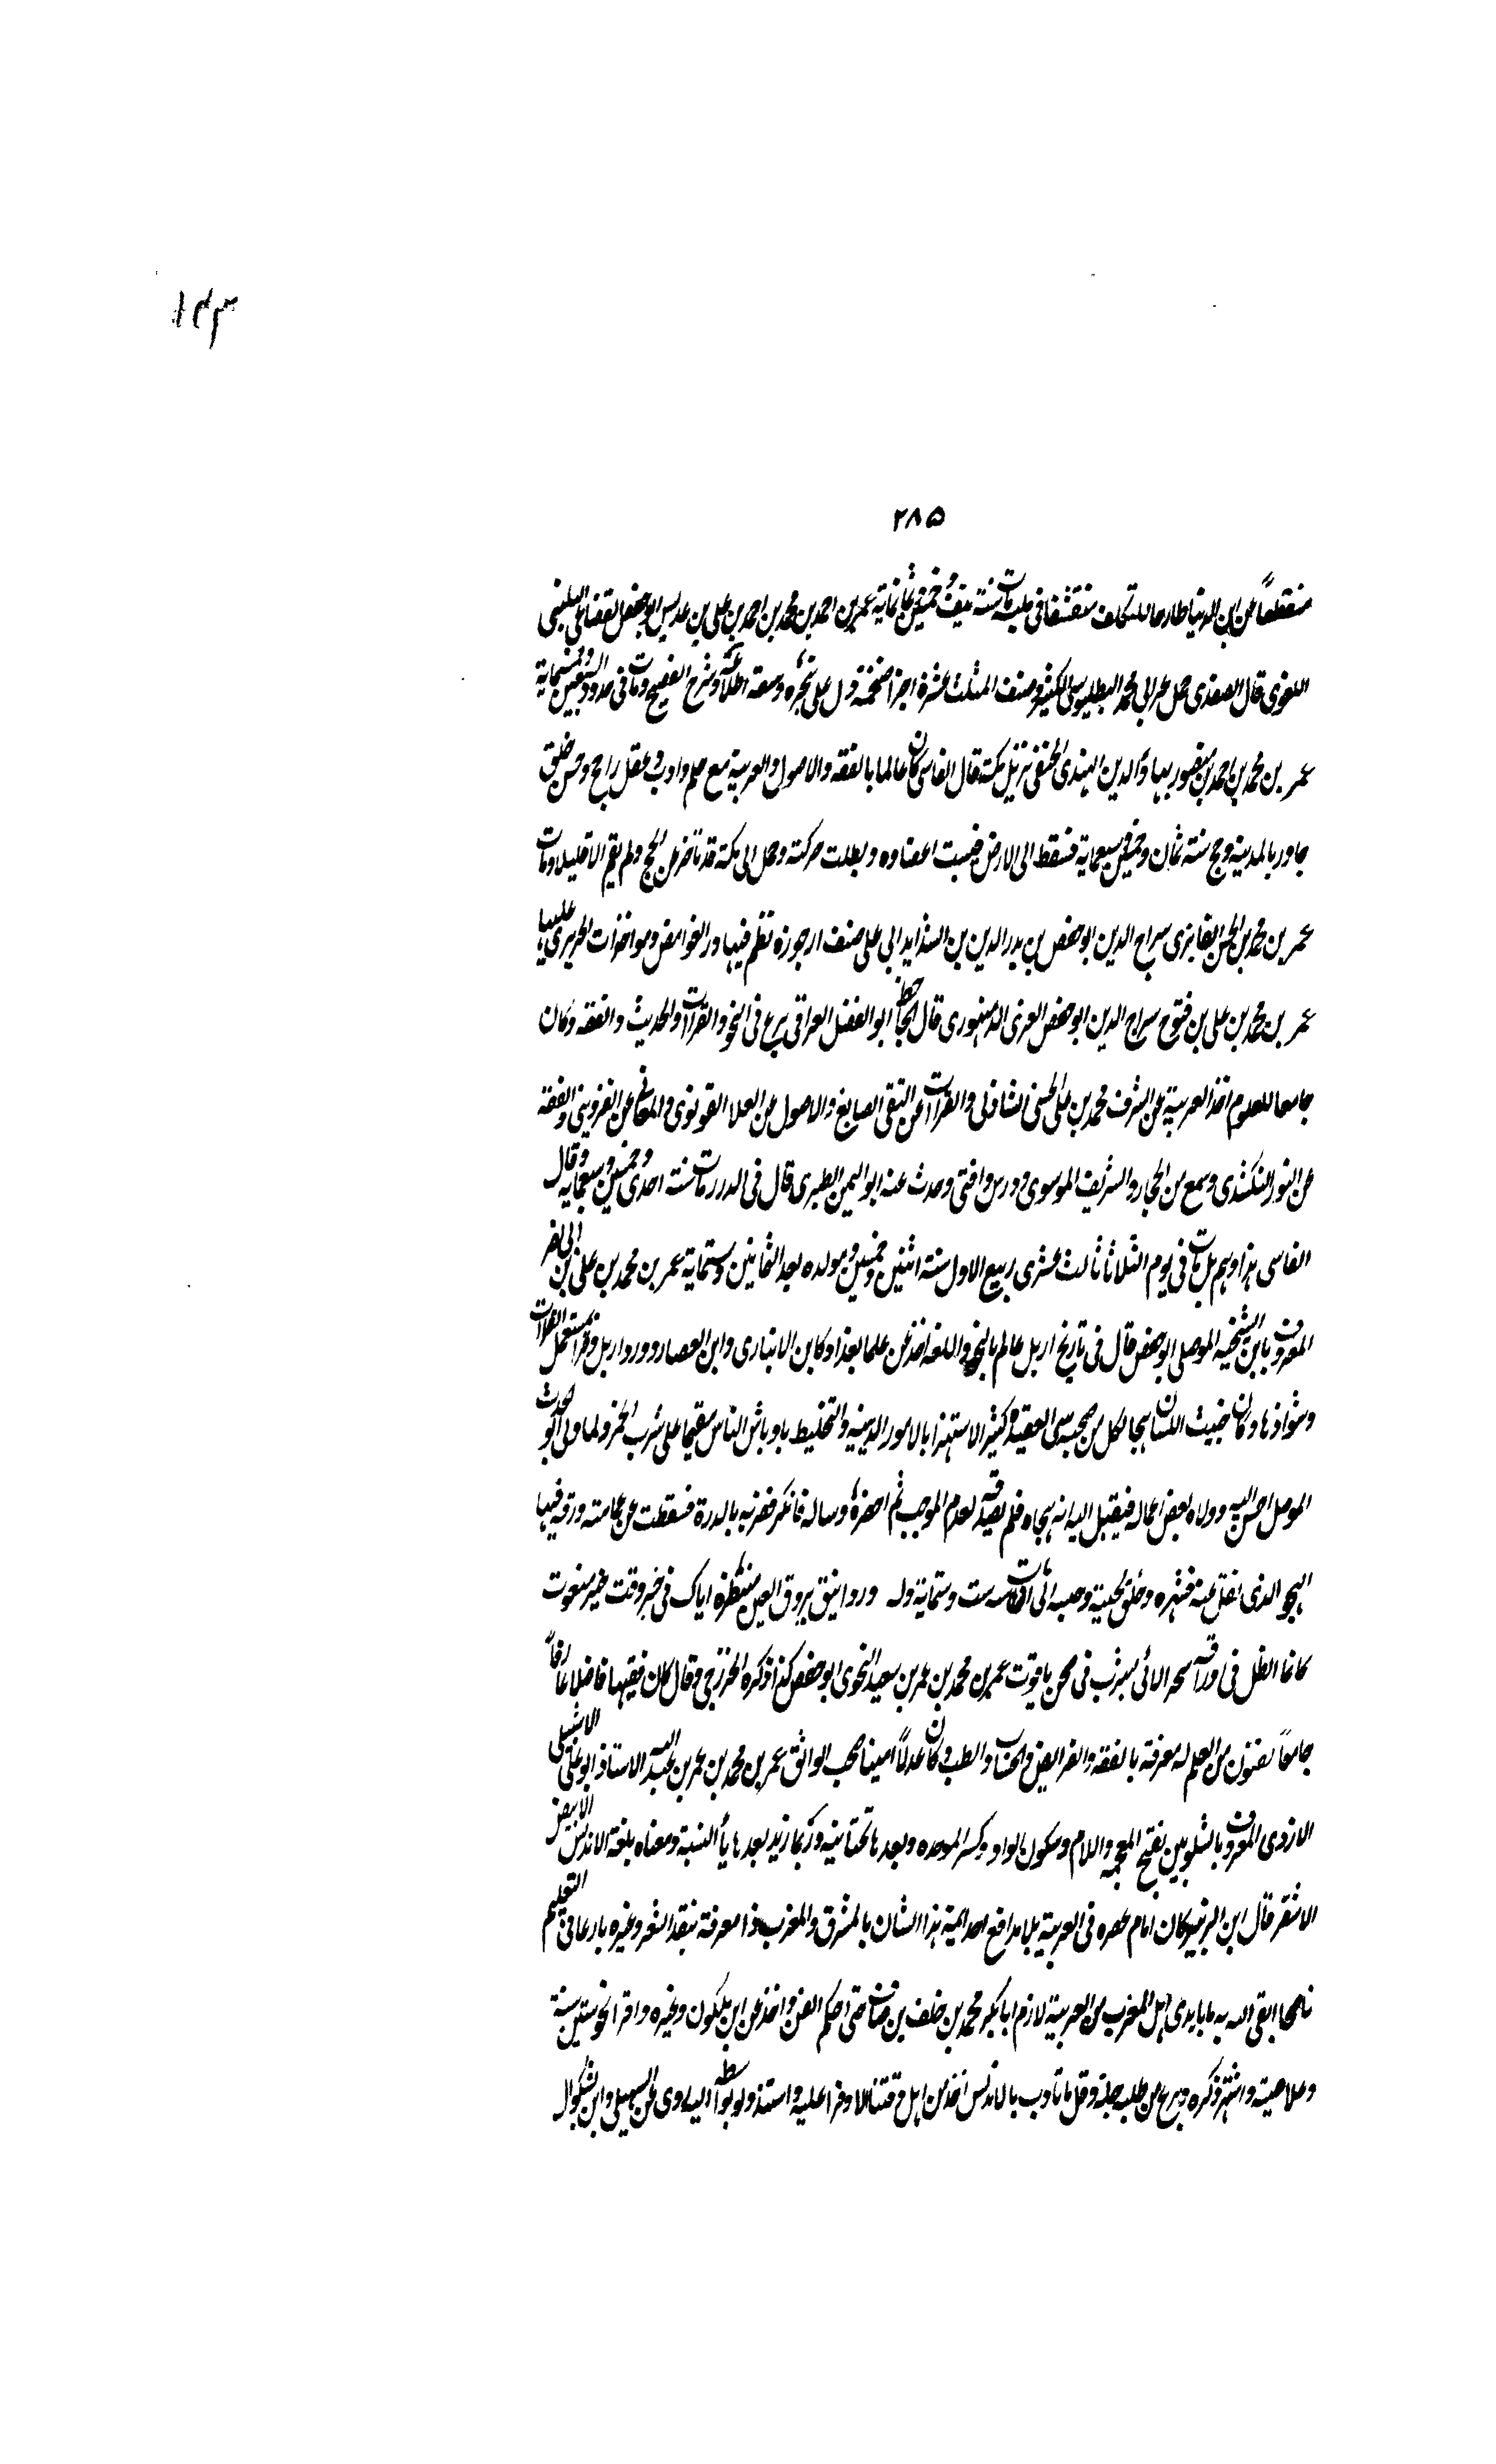 ١٤٣
٢٨٥
منقطعا عن ابن الدنيا طارحا للتكلف متقشفا فى ملبسه مات سنة نيف وخمسين وثمانماية عمر بن احمد بن محمد بن احمد بن على بن عديس ابو حفص القضاعى البلنسى
اللغوى قال الصفدى حمل عن ابى محمد البطليوسى الكثير وصنف المثلث عشرة اجزا ضخمة دل على تبحره وسعة اطلاعه وشرح الفصيح ومات فى حدود السبعين وخمسماية
عمر بن محمد بن احمد بن منصور بهاء الدين الهندى الحنفى نزيل مكة قال الفاسى كان عالما بالفقه والاصول والعربية مع حلم وادب وعقل راجح وحسن خلق
جاور بالمدينة وحج سنة ثمان وخمسين وسبعماية فسقط الى الارض فيبست اعضاوه وبطلت حركته وحمل الى مكة قد تاخر عن الحج ولم يقم الا قليلا ومات
عمر بن محمد بن الحسن القابزى سراج الدين ابو حفص بن بدر الدين بن السذايد ابى على صنف ارجوزة نظم فيها در الغوامض ومواخذات الحريرى عليها
عمر بن محمد بن على بن فتوح سراج الدين ابو حفص العزى الدمنهورى قال الحافظ ابو الفضل العراقى برع فى النحو والقراات والحديث والفقه وكان
جامعا للعلوم اخذ العربية عن الشرف محمد بن على الحسنى الشاذلى والقراات عن التقى الصايغ والاصول عن العلا القونوى والمعانى عن القزوينى والفقه
عن النور البكندى وسمع من الحجار والشريف الموسوى ودرس وافتى وحدث عنه ابو اليمن الطبرى قال فى الدرر مات سنة احدى وخمسين وسبعماية وقال
الفاسى هذا وهم بل مات فى يوم الثلاثا ثالث عشرى ربيع الاول سنة اثنتين وخمسين ومولده بعد الثمانين وستماية عمر بن محمد بن على بن ابى نصر
المعروف بابن الشحنه الموصلى ابو حفص قال فى تاريخ اربل عالم بالنحو واللغه اخذ عن علما بغداد كابن الانبارى وابن العصار وورد اربل وقرا مستعمل القراات
وشواذها وكان خبيث اللسان هجا لكل من صحبه سى العقيده كثير الاستهزا بالامور الدينيه والتخليط باوباش الناس مقيما على شرب الخمر ولما ولى ابو الحرث
الموصل احسن اليه وولاه بعض اعماله فقيل اليه انه هجاه فلم يصدقه لعدم الموجب ثم احضره وساله فانكر فضربه بالدرة فسقطت عن عمامته ورقة فيها
الهجو الذى نقل عنه فشهره وحلق لحيته وحبسه الى ان مات سنة ست وستماية وله ورد انيق يروق العين منظره اياك فى خير وقت خير منعوت
كانما الطل فى اوراقه سحرا لالئ سربت فى صحن ياقوت عمر بن محمد بن عمر بن سعيد النحوى ابو حفص كذا ذكره الخزرجى وقال كان فقيها فاضلا عارفا
جامعا لفنون من العلم له معرفة بالفقه والفرايض والحساب والطب وكان عدلا امينا صحب الواثق عمر بن محمد بن عمر بن عبد الله الاستاذ ابو على الاشبيلى
الازدى المعروف بالشلوبين بفتح المعجمه واللام وسكون الواو وكسر الموحده وبعدها تحتانيه وربما زيد بعدها يا النسبة ومعناه بلغة الاندلس الابيض
الاشقر قال ابن الزبير كان امام عصره فى العربية بلا مدافع اخر ايمة هذا الشان بالمشرق والمغرب ذا معرفة بنقد الشعر وغيره بارعا فى التعليم
ناصحا ابقى الله به ما بايدى اهل المغرب من العربية لازم ابا بكر محمد بن خلف بن صاف حتى احكم الفن واخذ عن ابن ملكون وغيره واقرا نحو ستين سنة
وعلا صيته واشتهر ذكره وبرع من طلبه جلة وقل ما تادب بالاندلس احد من اهل وقتنا الا وقرا عليه واستند ولو بواسطة اليه روى عن السهيلى وابن بشكوال